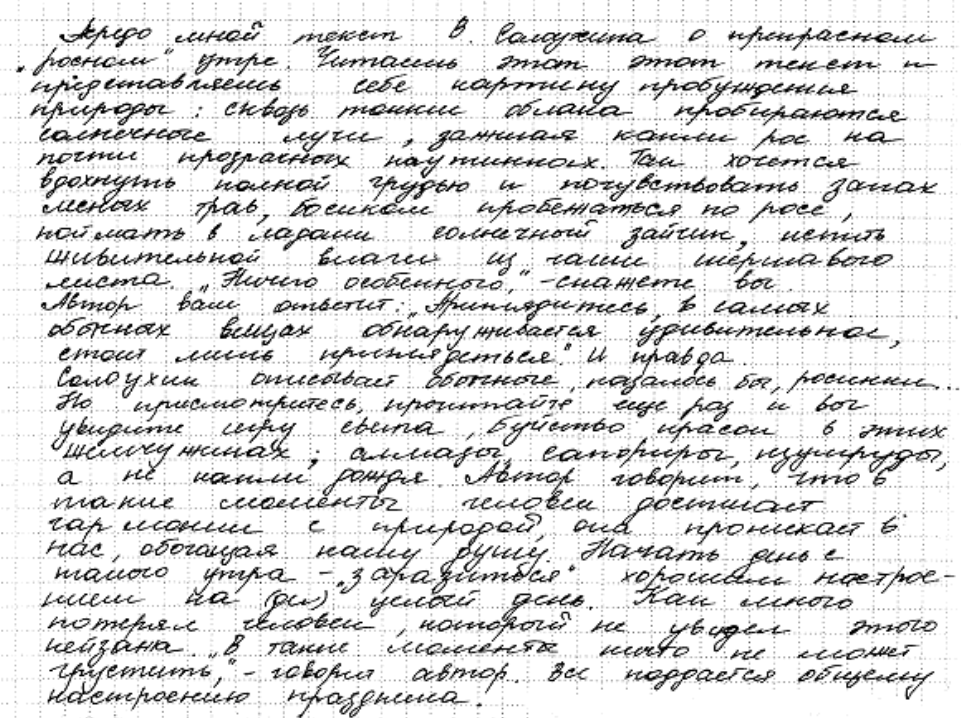 Передо мной текст В. Солоухина о прекрасном
„росном" утре. Читаешь этот этот текст и
представляешь себе картину пробуждения
природы: сквозь тонкие облака пробираются
солнечные лучи, зажигая капли рос на
почти прозрачных паутинках. Так хочется
вдохнуть полной грудью и почувствовать запах
лесных трав, босиком пробежаться по росе,
поймать в ладони солнечный зайчик, испить
живительной влаги из чаши шершавого
листа. „Ничего особенного," - скажете вы.
Автор вам ответит: „Приглядитесь, в самых
обычных вещах обнаруживается удивительное,
стоит лишь приглядеться". И правда.
Солоухин описывает обычные, казалось бы, росинки...
Но присмотритесь, прочитайте еще раз и вы
увидите игру света, буйство красок в этих
жемчужинах; алмазы, сапфиры, изумруды,
а не капли дождя. Автор говорит, что в
такие моменты человек достигает
гармонии с природой, она проникает в
нас, обогащая нашу душу. Начать день с
такого утра - „заразиться" хорошим настрое-
нием на (де) целый день. Как много
потерял человек, который не увидел этого
пейзажа. „В такие моменты ничто не может
грустить," - говорил автор. Все поддается общему
настроению праздника.